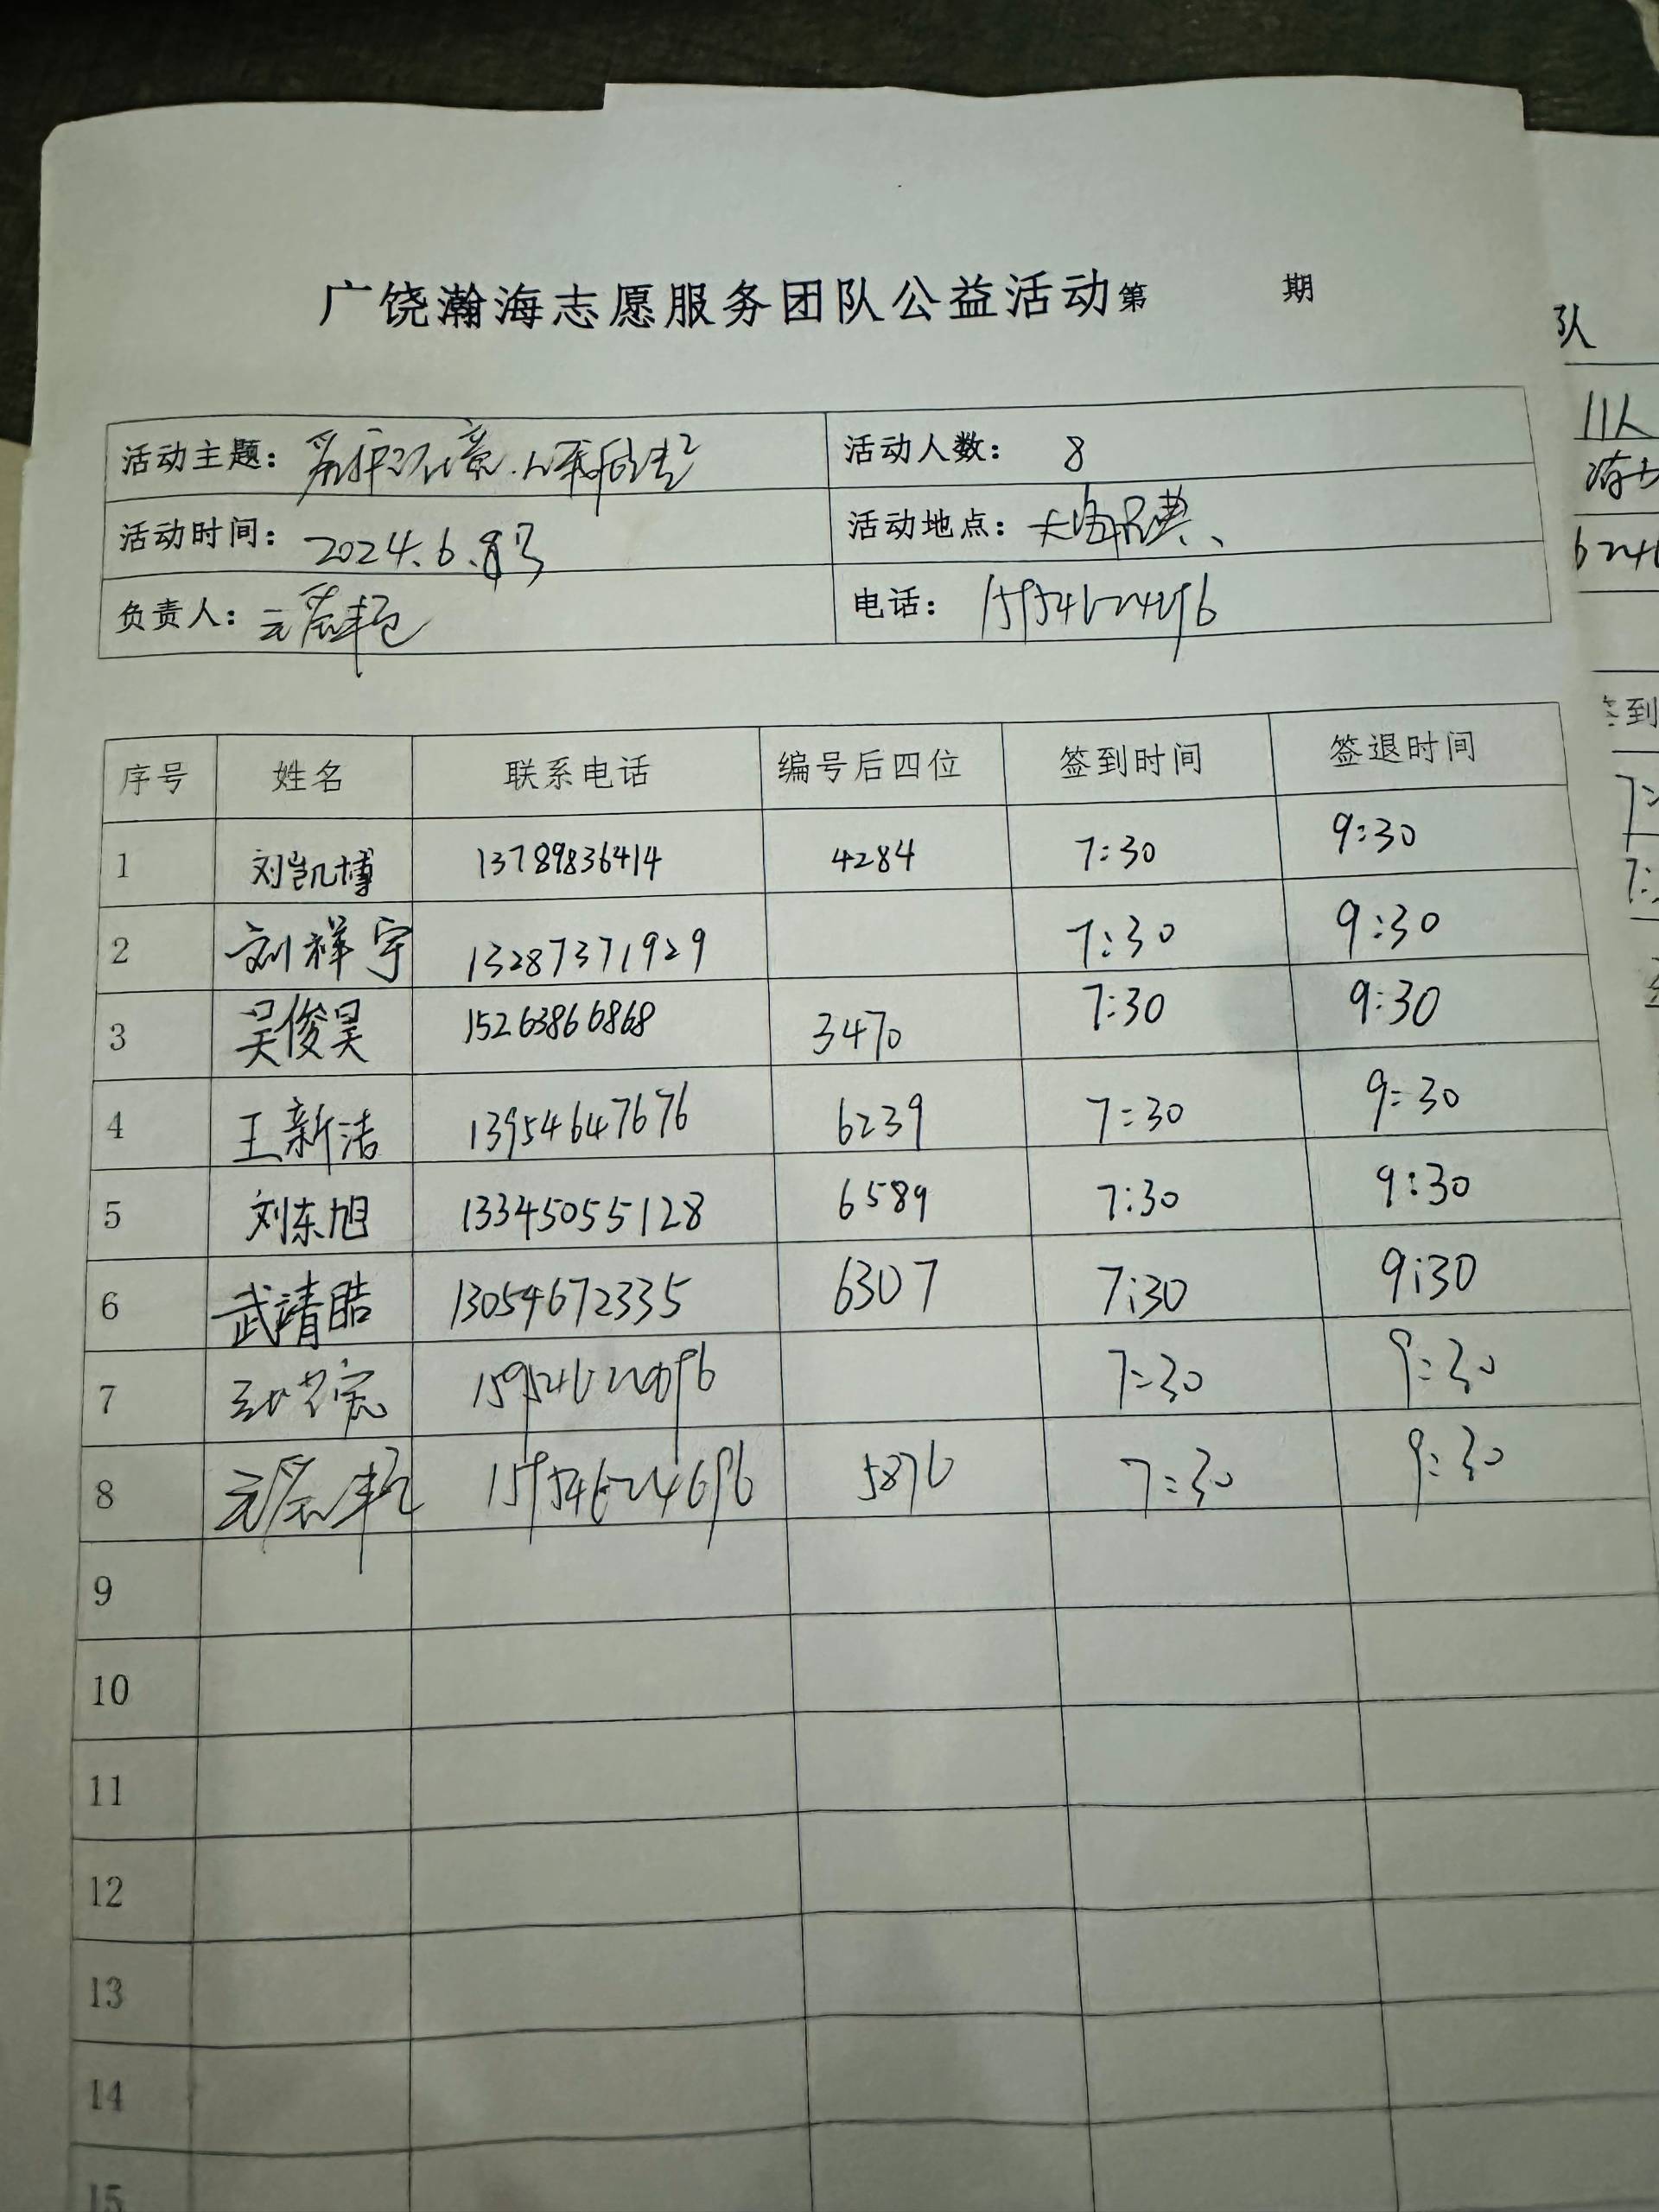 广饶瀚海志愿服务团队公益活动第 期
活动主题： 活动人数： 8
活动时间： 2024.6.8号 活动地点：
负责人： 电话：
序号 姓名 联系电话 编号后四位 签到时间 签退时间
1 刘凯博 13789836414 4284 7:30 9:30
2 刘祥宇 13287371929 7:30 9:30
3 吴俊昊 15263866868 3470 7:30 9:30
4 王新洁 13954647676 6239 7:30 9:30
5 刘东旭 13345055128 6589 7:30 9:30
6 武靖皓 13054672335 6307 7:30 9:30
7 7:30 9:30
8 15954624696 5876 7:30 9:30
9
10
11
12
13
14
15
队
11人
签到